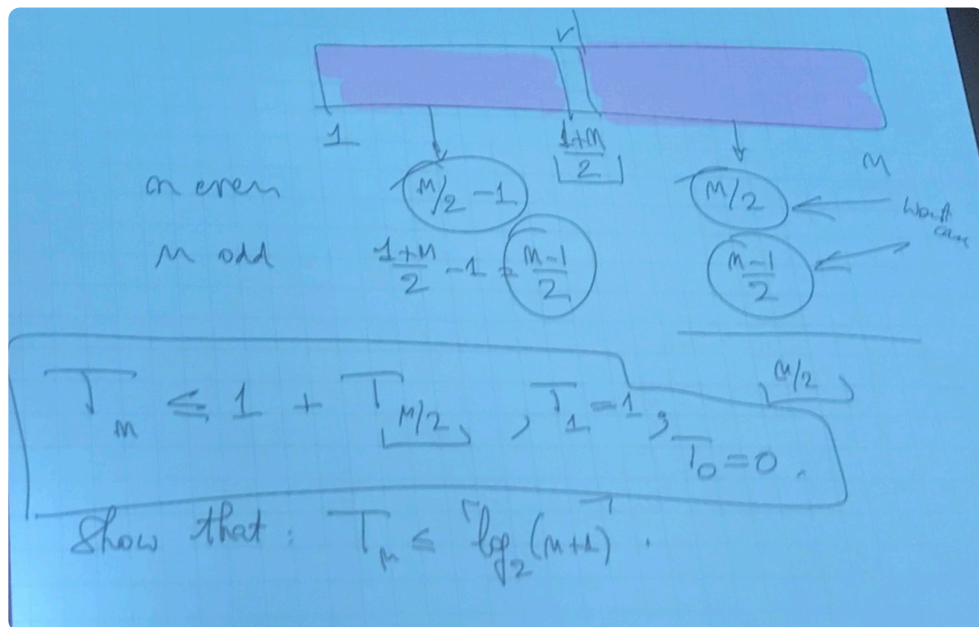 1 ⌊(1+n)/2⌋ n
n even n/2 - 1 n/2 Worst case
n odd (1+n)/2 - 1 = (n-1)/2 (n-1)/2
⌊n/2⌋
T_n ≤ 1 + T_⌊n/2⌋ , T_1 = 1 , T_0 = 0 .
Show that : T_n ≤ ⌈log_2(n+1)⌉ .